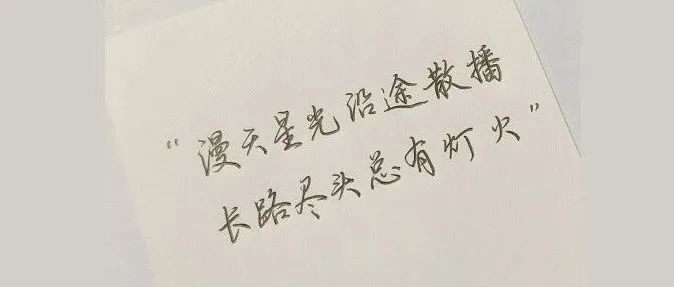 “漫天星光沿途散播
长路尽头总有灯火”